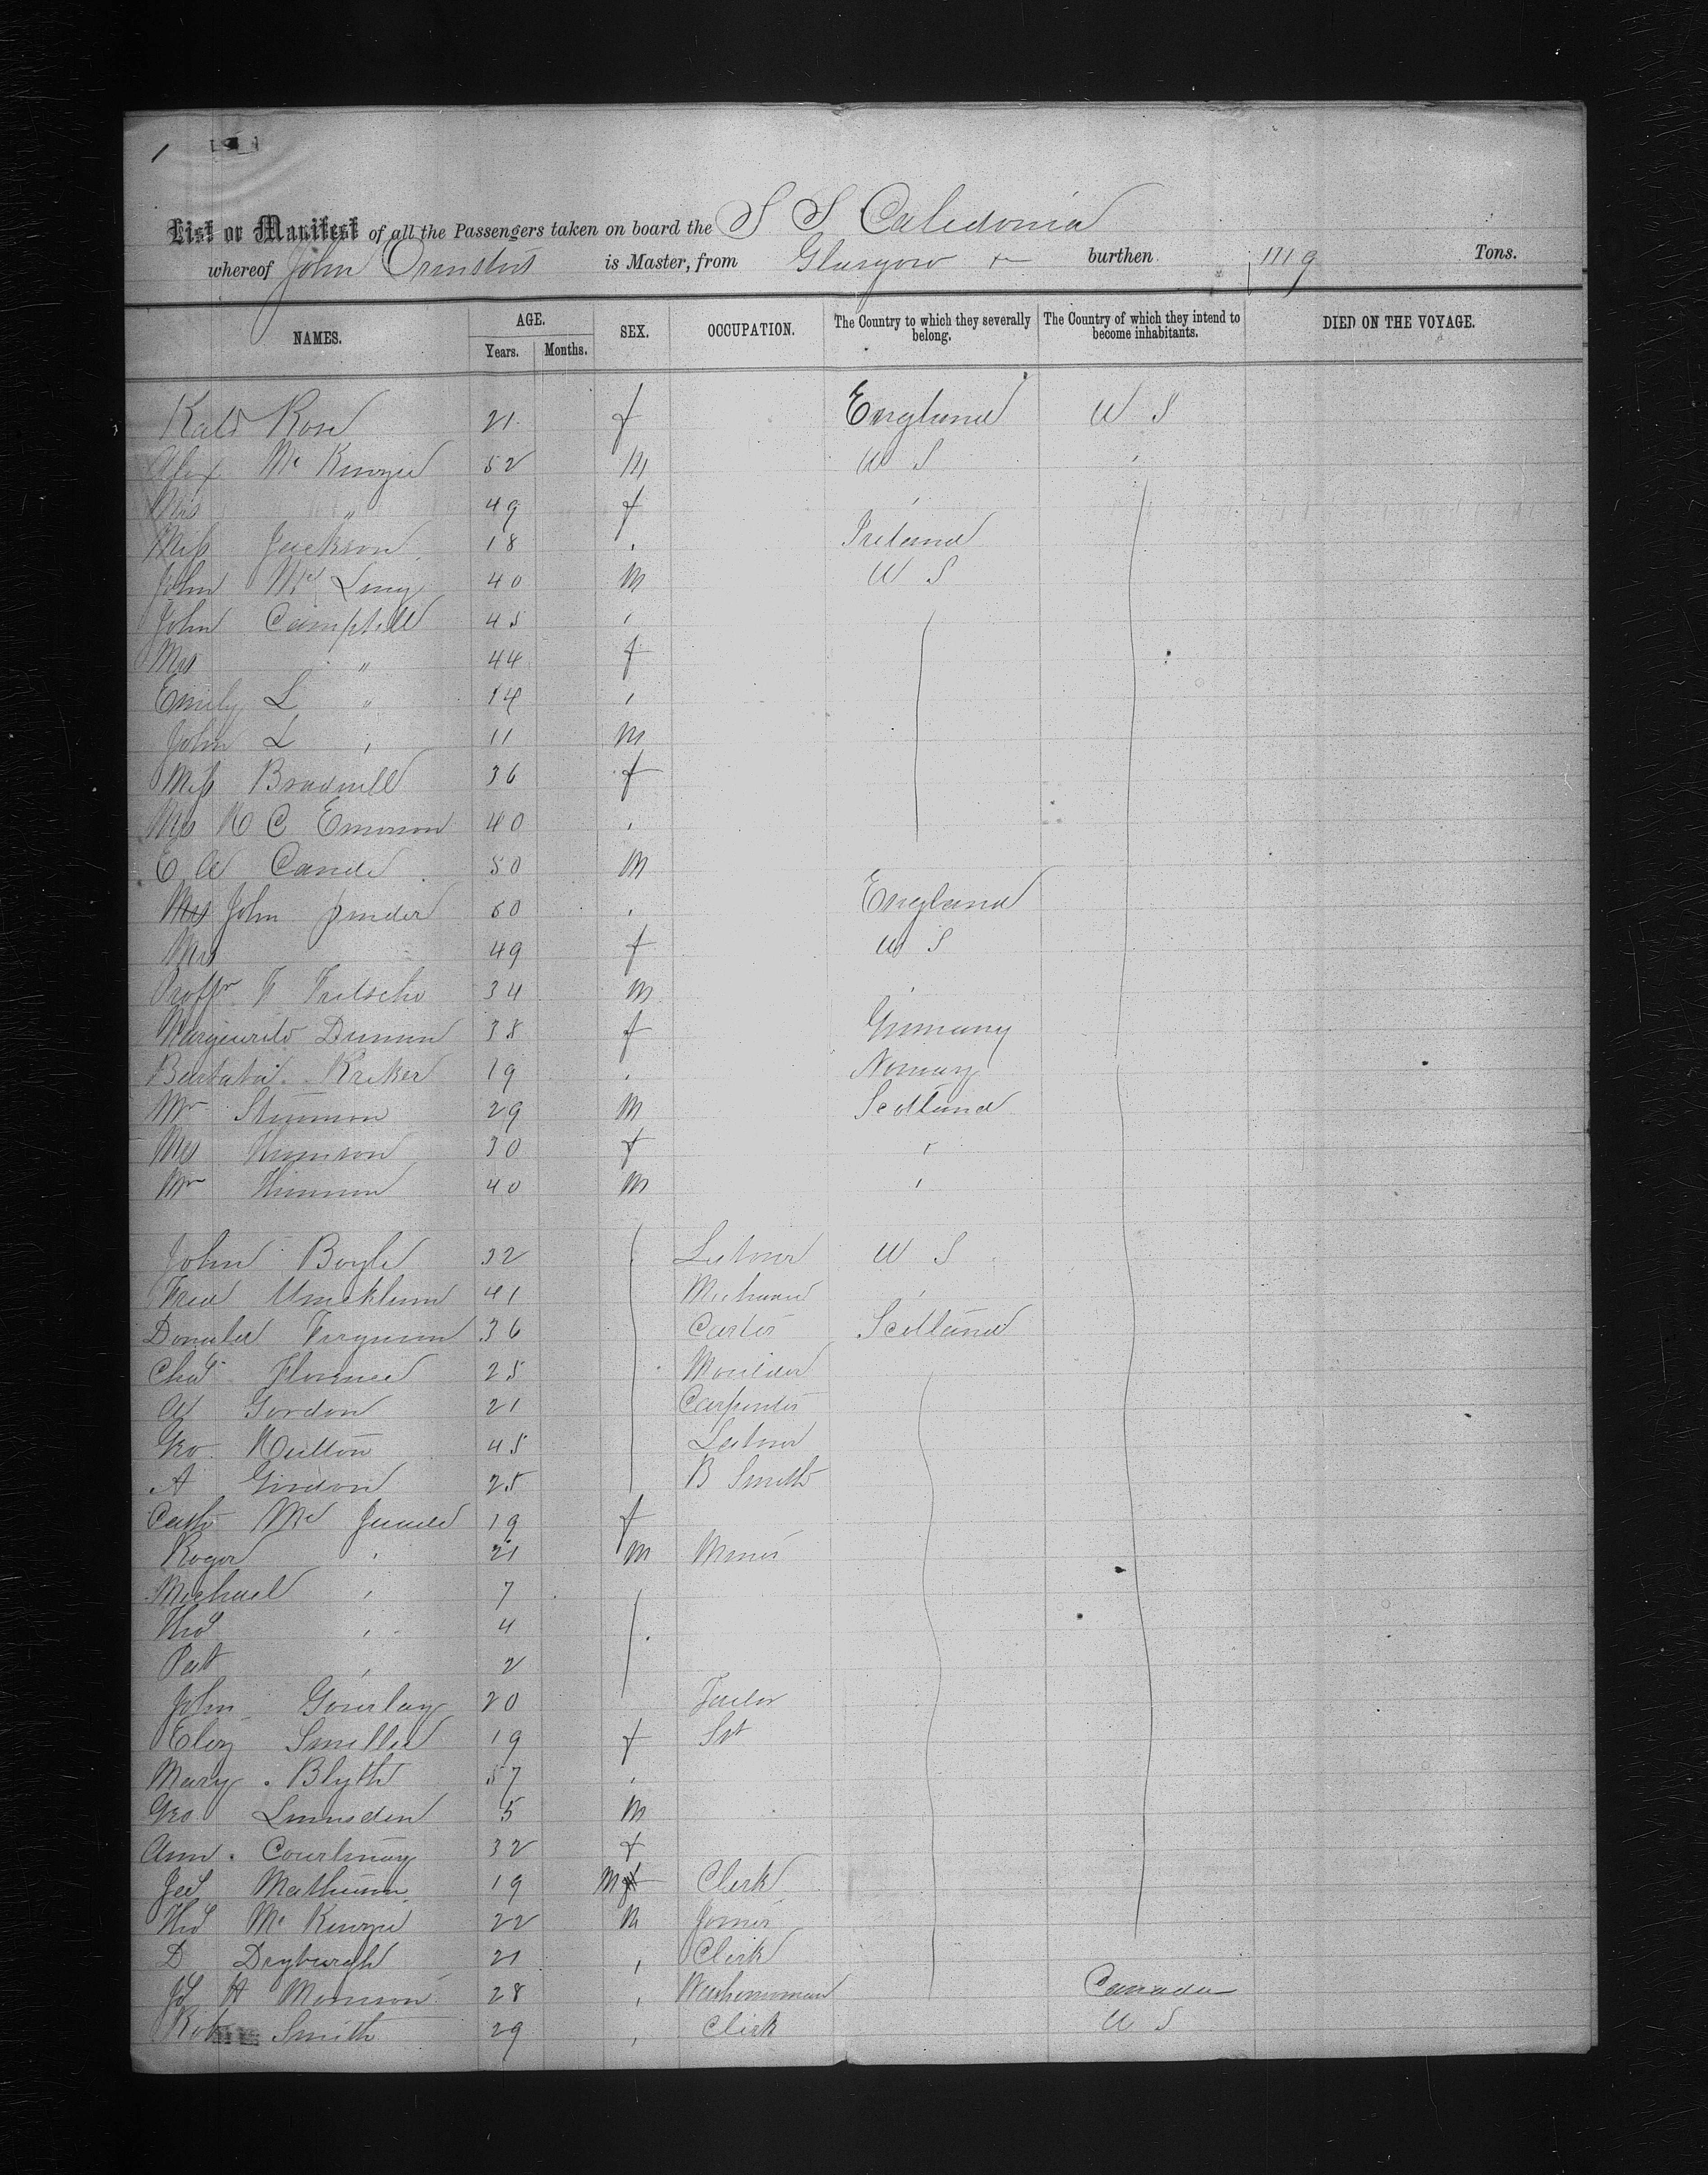 1
List or Manifest of all the Passengers taken on board the S S Caledonia
whereof John Ormston is Master, from Glasgow burthen 1119 Tons.
NAMES. AGE. Years. Months. SEX. OCCUPATION. The Country to which they severally belong. The Country of which they intend to become inhabitants. DIED ON THE VOYAGE.
Kate Rose 21 f England U S
Alex Mc Kenzie 52 M U S "
Mrs " 49 f "
Miss Jackson 18 " Ireland
John Mc 40 M U S
John Campbell 45 "
Mrs " 44 f
Emily L " 14 "
John L " 11 M
Miss 36 f
Mrs C Emerson 40 "
E W 50 M
John Pinder 50 " England
Mrs 49 f U S
F Fritsche 34 M "
38 f Germany
19 " Norway
Mr 29 M Scotland
30 f "
Mr 40 M "
John Boyle 32 U S
Fred 41 "
Donald Ferguson 36 Carter Scotland
Chas Florence 25 Moulder
A Gordon 21 Carpenter
Geo 45
A Gordon 25 B Smith
Cath Mc 19 f
Roger " 21 M Miner
Michael " 7
Thos " 4
Pat " 2
John Gourlay 20 Tailor
Eliz Smellie 19 f Svt
Mary Blyth 57 "
Geo Lumsden 5 M
Ann Courtnay 32 f
Jas 19 M Clerk
Thos Mc Kenzie 22 M Joiner
D Dryburgh 21 " Clerk
H 28 " Canada
Smith 29 " Clerk U S